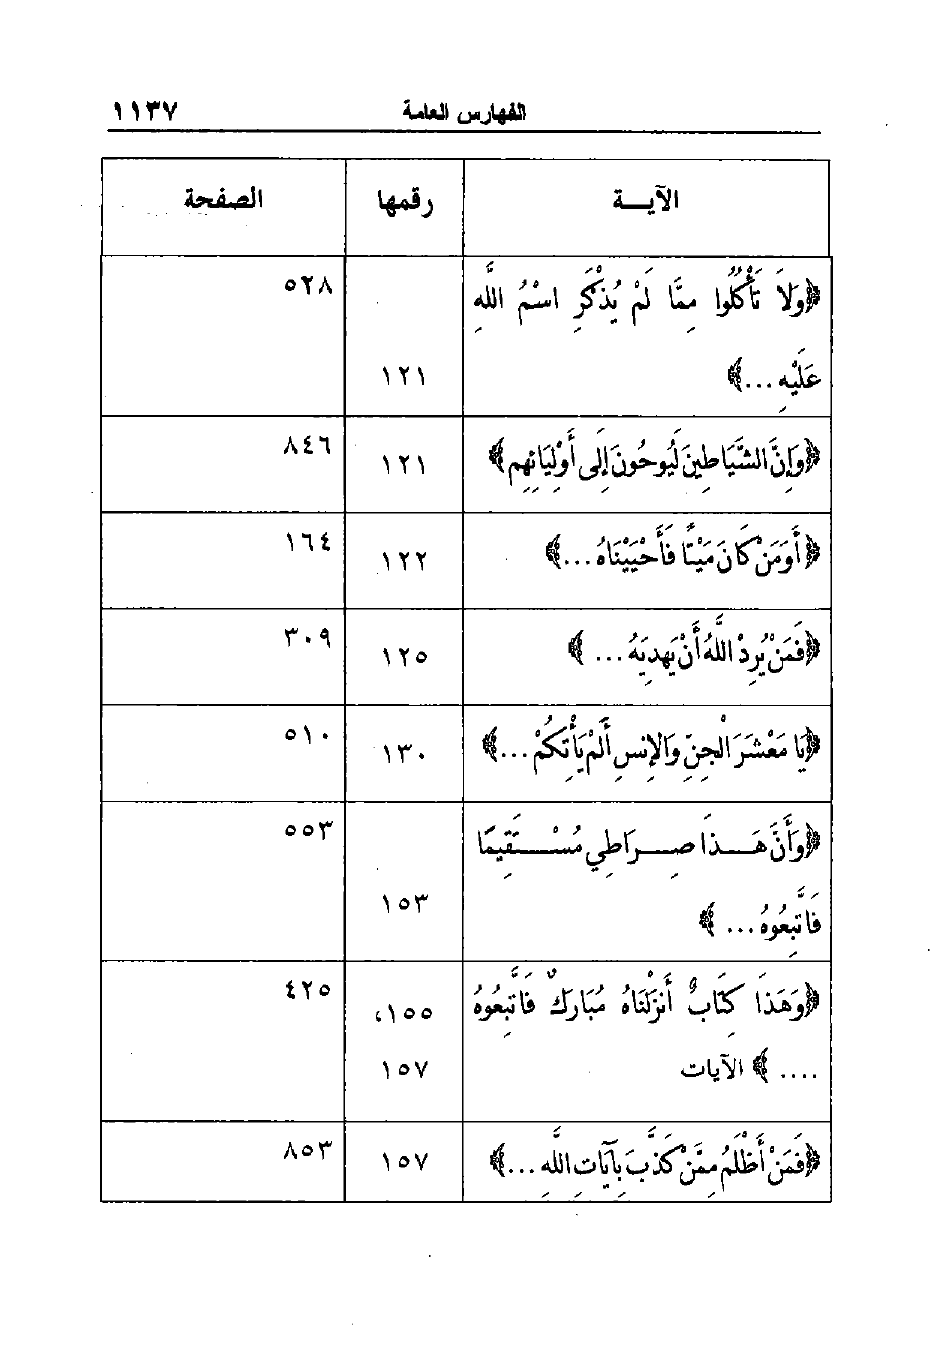 الفهارس العامة ١١٣٧
الآيــة رقمها الصفحة
﴿وَلاَ تَأْكُلُوا مِمَّا لَمْ يُذْكَرِ اسْمُ اللَّهِ ٥٢٨
عَلَيْهِ ...﴾ ١٢١
﴿وَإِنَّ الشَّيَاطِينَ لَيُوحُونَ إِلَى أَوْلِيَائِهِم﴾ ١٢١ ٨٤٦
﴿أَوَمَنْ كَانَ مَيْتًا فَأَحْيَيْنَاهُ ...﴾ ١٢٢ ١٦٤
﴿فَمَنْ يُرِدْ اللَّهُ أَنْ يَهدِيَهُ ... ﴾ ١٢٥ ٣٠٩
﴿يَا مَعْشَرَ الْجِنِّ وَالإِنسِ أَلَمْ يَأْتِكُمْ ...﴾ ١٣٠ ٥١٠
﴿وَأَنَّ هَـــذَا صِـــرَاطِي مُسْـــتَقِيمًا ٥٥٣
فَاتَّبِعُوهُ ... ﴾ ١٥٣
﴿وَهَذَا كِتَابٌ أَنزَلْنَاهُ مُبَارَكٌ فَاتَّبِعُوهُ ١٥٥، ٤٢٥
.... ﴾ الآيات ١٥٧
﴿فَمَنْ أَظْلَمُ مِمَّنْ كَذَّبَ بِآيَاتِ اللَّهِ ...﴾ ١٥٧ ٨٥٣